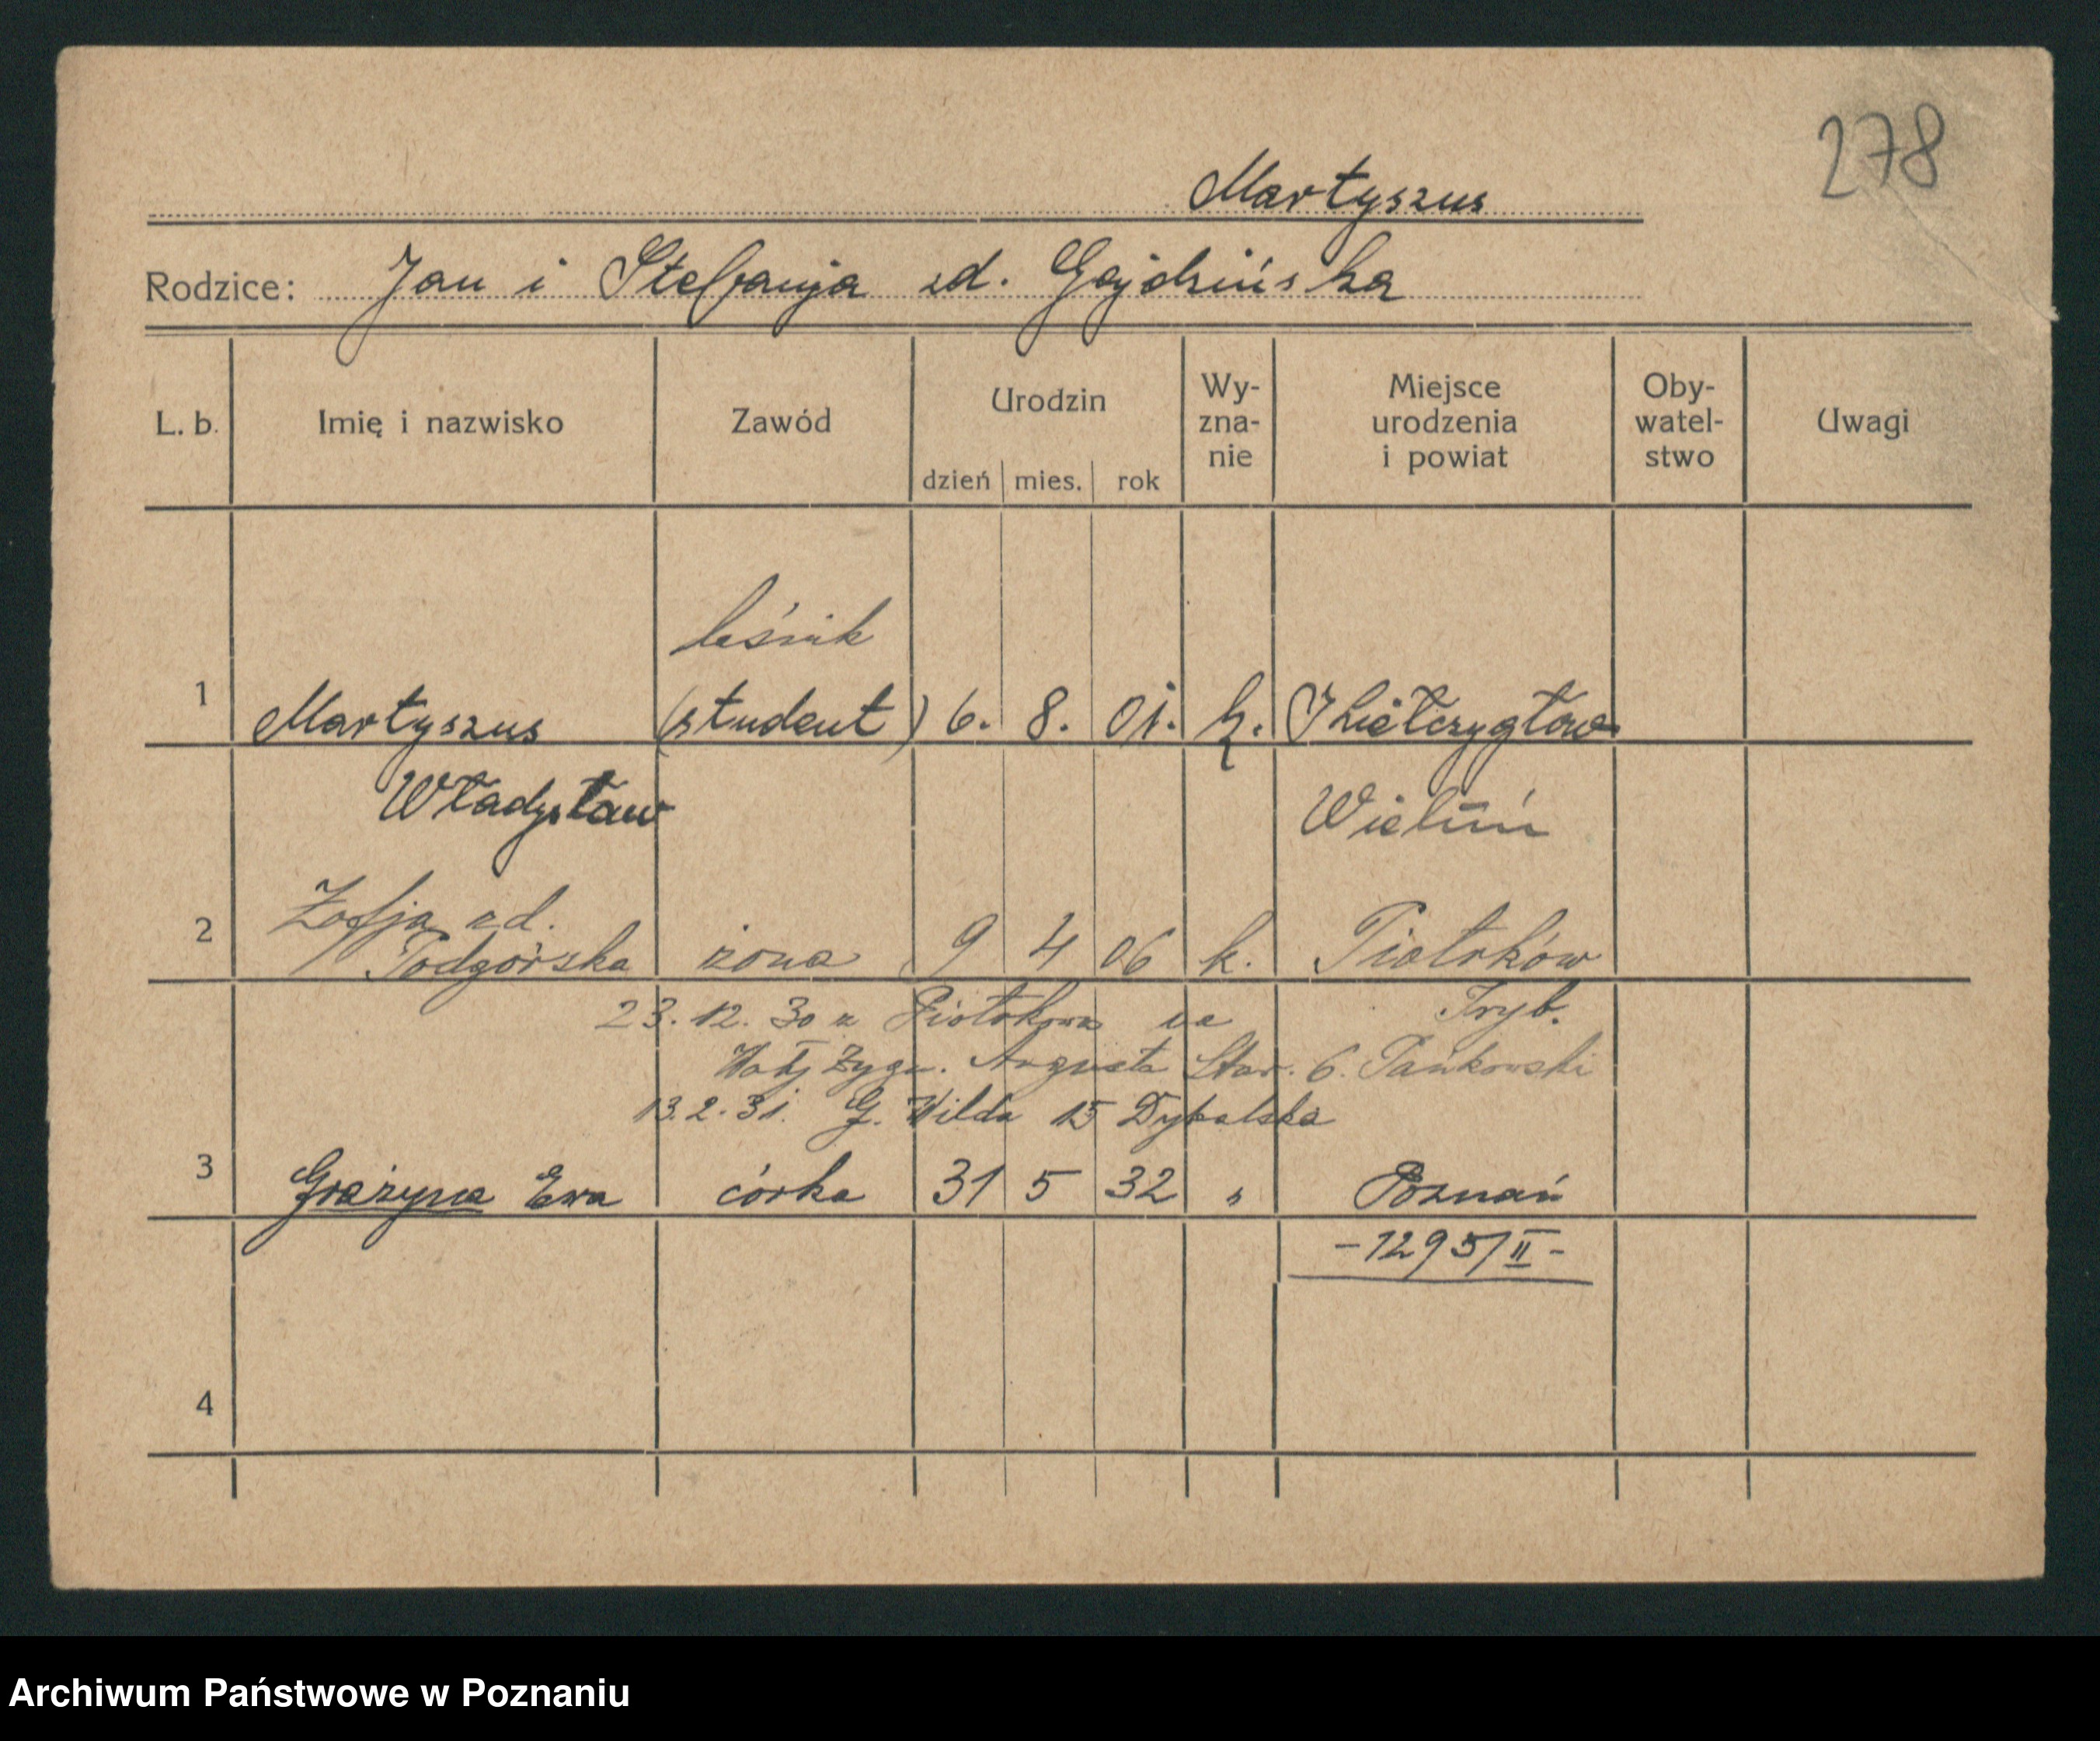 278
Martyszus
Rodzice: Jan i Stefanja zd. Gajdzińska
L. b. Imię i nazwisko Zawód Urodzin dzień mies. rok Wy-zna-nie Miejsce urodzenia i powiat Oby-watel-stwo Uwagi
leśnik
1 Martyszus (student) 6. 8. 01. k.
Władysław Wieluń
Zofja zd.
2 Podgórska żona 9 4 06 k. Piotrków
23.12.30 z Piotrkowa na Tryb.
Wały Zygm. Augusta Star. 6. Pańkowski
13.2.31. G. Wilda 15
3 Grażyna Ewa córka 31 5 32 " Poznań
-1295/II-
4
Archiwum Państwowe w Poznaniu